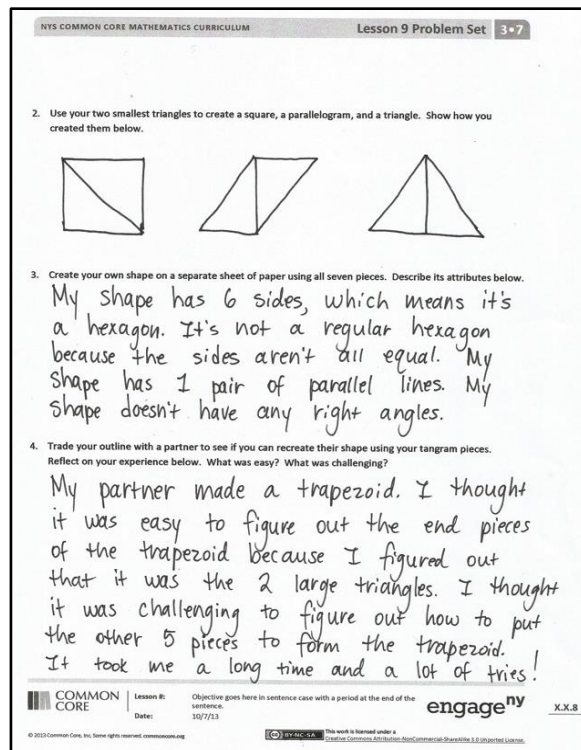 NYS COMMON CORE MATHEMATICS CURRICULUM
Lesson 9 Problem Set 3•7
2. Use your two smallest triangles to create a square, a parallelogram, and a triangle. Show how you
created them below.
3. Create your own shape on a separate sheet of paper using all seven pieces. Describe its attributes below.
My shape has 6 sides, which means it's
a hexagon. It's not a regular hexagon
because the sides aren't all equal. My
Shape has 1 pair of parallel lines. My
Shape doesn't have any right angles.
4. Trade your outline with a partner to see if you can recreate their shape using your tangram pieces.
Reflect on your experience below. What was easy? What was challenging?
My partner made a trapezoid. I thought
it was easy to figure out the end pieces
of the trapezoid because I figured out
that it was the 2 large triangles. I thought
it was challenging to figure out how to put
the other 5 pieces to form the trapezoid.
It took me a long time and a lot of tries!
COMMON
CORE
Lesson #:
Date:
Objective goes here in sentence case with a period at the end of the
sentence.
10/7/13
engage ny
X.X.8
© 2013 Common Core, Inc. Some rights reserved. commoncore.org
(cc) BY-NC-SA
This work is licensed under a
Creative Commons Attribution-NonCommercial-ShareAlike 3.0 Unported License.